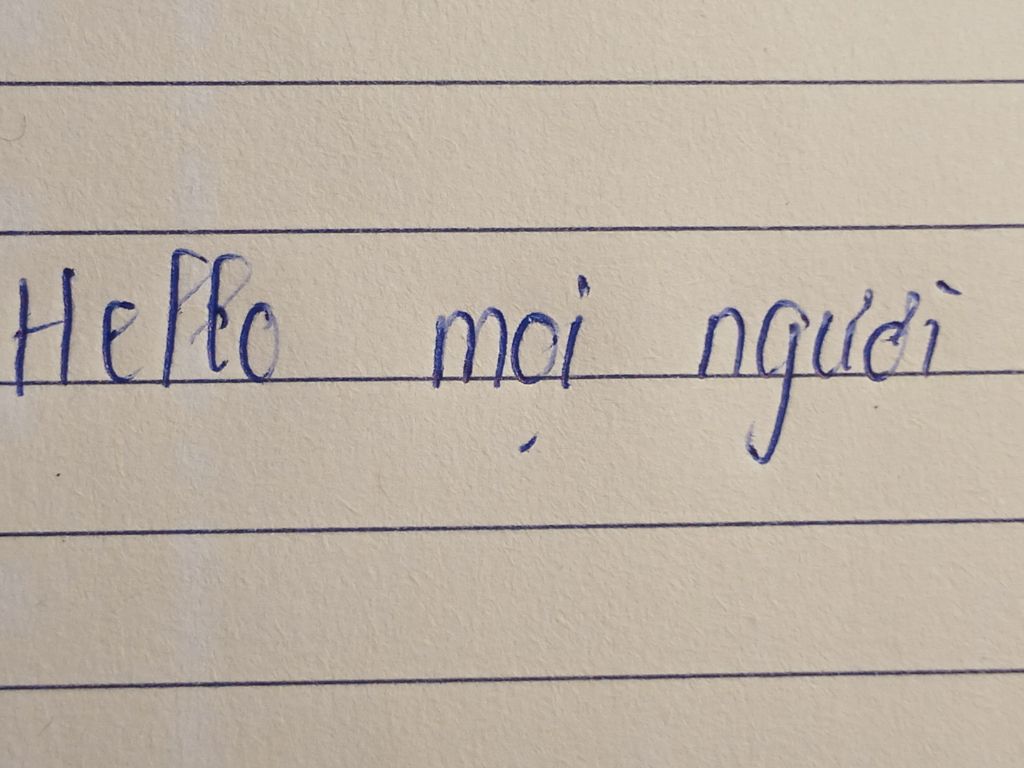 Hello mọi người